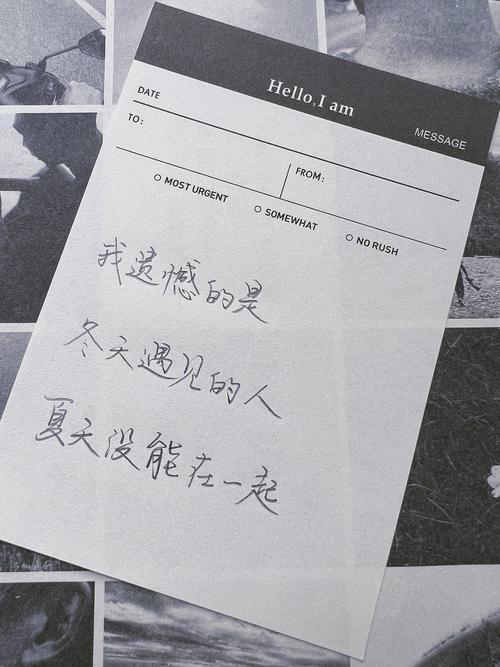 Hello, I am
MESSAGE
DATE
TO:
FROM:
MOST URGENT
SOMEWHAT
NO RUSH
我遗憾的是
冬天遇见的人
夏天没能在一起